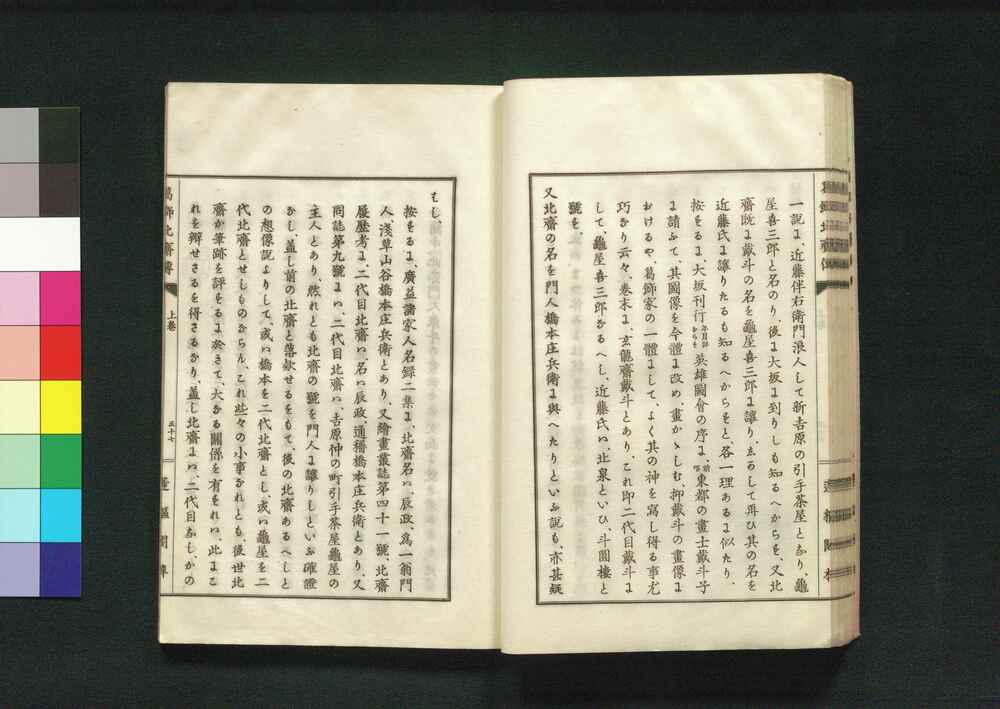 一説に、近藤伴右衛門浪人して新吉原の引手茶屋となり、龜
屋喜三郎と名のり、後に大坂に到りしも知るへからを、又北
齋既に戴斗の名を龜屋喜三郎に讓り、ゑるして再ひ其の名を
近藤氏に讓りたるも知るへからをと、各一理あるに似たり、
按をるに、大坂刊行年月詳からを英雄圖會の序に、前畧東都の畫士戴斗子
に請ふて、其圖像を今體に改め、畫かゝしむ、抑戴斗の畫像に
おけるや、葛飾家の一體にして、よく其の神を寫し得る事尤
巧なり云々、卷末に、玄龍齋戴斗とあり、これ即二代目戴斗に
して、龜屋喜三郎なるへし、近藤氏ハ、北泉といひ、斗圓樓と
號を、
又北齋の名を門人橋本庄兵衛に與へたりといふ説も亦甚疑
もし、
按をるに、廣益諸家人名録二集に、北齋名ハ、辰政、爲一翁門
人、淺草山谷橋本庄兵衛とあり、又繪畫叢誌第四十一號、北齋
履歴考に、二代目北齋ハ、名ハ辰政、通稱橋本庄兵衛とあり、又
同誌第九號にハ、二代目北齋ハ、吉原仲の町引手茶屋龜屋の
主人とあり、然れとも北齋の號を門人に讓りしといふ確證
なし、盖し前の北齋と落欵せるをもて、後の北齋あるへしと
の想像説よりして、或ハ橋本を二代北齋とし、或ハ龜屋を二
代北齋とせしものならん、これ些々の小事なれとも、後世北
齋か筆跡を評をるに於きて、大なる關係を有をれハ、此にこ
れを辨せさるを得さるなり、盖し北齋にハ、二代目なし、かの
葛飾北齋傳
上卷
五十七